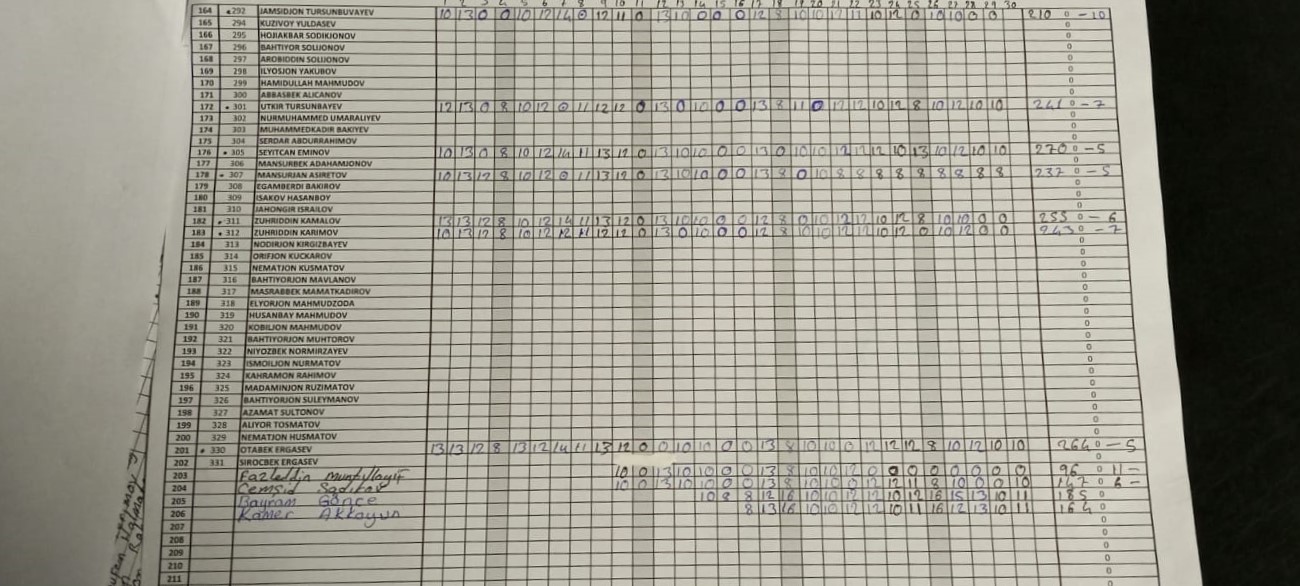 164 292 JAMSIDJON TURSUNBUVAYEV 10 13 0 0 10 12 14 0 12 11 0 13 10 0 0 0 12 8 10 10 12 11 10 12 0 10 10 0 0 210 0 - 10
165 294 KUZIVOY YULDASEV 0
166 295 HOJIAKBAR SODIKJONOV 0
167 296 BAHTIYOR SOLIJONOV 0
168 297 AROBIDDIN SOLIJONOV 0
169 298 ILYOSJON YAKUBOV 0
170 299 HAMIDULLAH MAHMUDOV 0
171 300 ABBASBEK ALICANOV 0
172 301 UTKIR TURSUNBAYEV 12 13 0 8 10 12 0 11 12 12 0 13 0 10 0 0 13 8 11 0 12 12 10 12 8 10 12 10 10 241 0 - 7
173 302 NURMUHAMMED UMARALIYEV 0
174 303 MUHAMMEDKADIR BAKIYEV 0
175 304 SERDAR ABDURRAHIMOV 0
176 305 SEYITCAN EMINOV 10 13 0 8 10 12 14 11 13 12 0 13 10 10 0 0 13 0 10 10 12 12 12 10 13 10 12 10 10 270 0 - 5
177 306 MANSURBEK ADAHAMJONOV 0
178 307 MANSURJAN ASIRETOV 10 13 12 8 10 12 0 11 13 12 0 13 10 10 0 0 13 8 0 10 8 8 8 8 8 8 8 8 8 237 0 - 5
179 308 EGAMBERDI BAKIROV 0
180 309 ISAKOV HASANBOY 0
181 310 JAHONGIR ISRAILOV 0
182 311 ZUHRIDDIN KAMALOV 13 13 12 8 10 12 14 11 13 12 0 13 10 10 0 0 12 8 0 10 12 12 10 12 8 10 10 0 0 255 0 - 6
183 312 ZUHRIDDIN KARIMOV 10 13 12 8 10 12 12 11 12 12 0 13 0 10 0 0 12 8 10 10 12 12 10 12 0 10 12 0 0 243 0 - 7
184 313 NODIRJON KIRGIZBAYEV 0
185 314 ORIFJON KUCKAROV 0
186 315 NEMATJON KUSMATOV 0
187 316 BAHTIYORJON MAVLANOV 0
188 317 MASRABBEK MAMATKADIROV 0
189 318 ELYORJON MAHMUDZODA 0
190 319 HUSANBAY MAHMUDOV 0
191 320 KOBILJON MAHMUDOV 0
192 321 BAHTIYORJON MUHTOROV 0
193 322 NIYOZBEK NORMIRZAYEV 0
194 323 ISMOILJON NURMATOV 0
195 324 KAHRAMON RAHIMOV 0
196 325 MADAMINJON RUZIMATOV 0
197 326 BAHTIYORJON SULEYMANOV 0
198 327 AZAMAT SULTONOV 0
199 328 ALIYOR TOSMATOV 0
200 329 NEMATJON HUSMATOV 0
201 330 OTABEK ERGASEV 13 13 12 8 13 12 14 11 13 12 0 0 10 10 0 0 13 8 10 10 0 12 12 12 8 10 12 10 10 264 0 - 5
202 331 SIROCBEK ERGASEV 0
203 Fazleddin 10 0 13 10 10 0 0 13 8 10 10 12 0 0 0 0 0 0 0 0 96 0 11 -
204 Cemsid 10 0 13 10 10 0 0 13 8 10 10 0 12 12 11 8 10 0 0 10 147 0 6 -
205 Bayram Gönce 10 8 8 12 16 10 10 12 12 10 12 16 15 13 10 11 185 0
206 Kamer Akkoyun 8 13 16 10 10 12 12 10 11 16 12 13 10 11 164 0
207 0
208 0
209 0
210 0
211 0